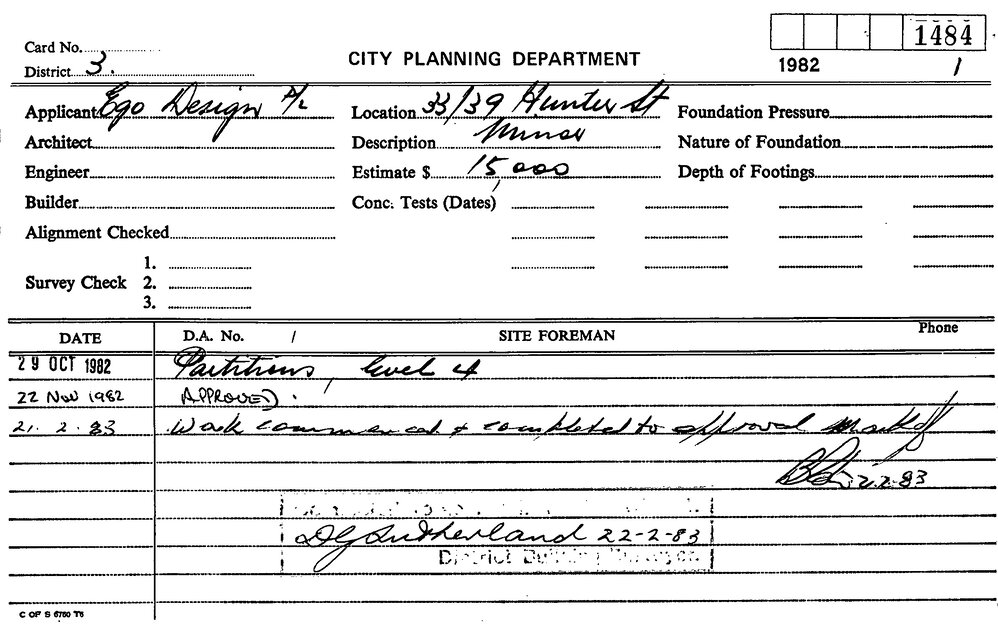 1484
Card No.
CITY PLANNING DEPARTMENT
District 3.
1982 1
Applicant Ego Design P/L Location 33/39 Hunter St Foundation Pressure
Architect Description Minor Nature of Foundation
Engineer Estimate $ 15,000 Depth of Footings
Builder Conc. Tests (Dates)
Alignment Checked
Survey Check 1.
2.
3.
DATE D.A. No. / SITE FOREMAN Phone
29 OCT 1982 Partitions, level 4
22 Nov 1982 APPROVED.
21. 2. 83 Work commenced & completed to approval
22.2.83
DG Sutherland 22-2-83
District Building Surveyor
C OF S 6760 TS